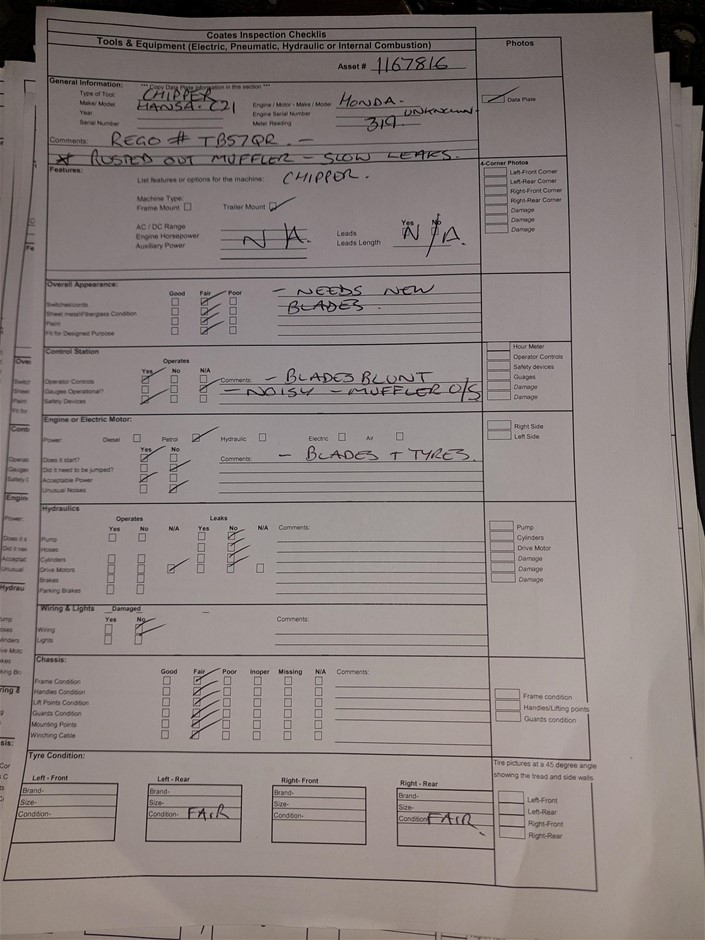 Coates Inspection Checklis
Tools & Equipment (Electric, Pneumatic, Hydraulic or Internal Combustion)
Photos
Asset # 1167816
General Information: *** Copy Data Plate information in this section ***
Type of Tool: CHIPPER
Make/ Model HANSA C21 Engine / Motor - Make / Model HONDA -
Year Engine Serial Number UNKNOWN-
Serial Number Meter Reading 319
Data Plate
Comments: REGO # TB57QR. -
* RUSTED OUT MUFFLER - SLOW LEAKS.
Features:
List features or options for the machine: CHIPPER.
Machine Type:
Frame Mount Trailer Mount
AC / DC Range
Engine Horsepower
Auxiliary Power
N A.
Yes No
Leads
Leads Length
N/A.
4-Corner Photos
Left-Front Corner
Left-Rear Corner
Right-Front Corner
Right-Rear Corner
Damage
Damage
Damage
Overall Appearance:
Good Fair Poor
- NEEDS NEW
BLADES.
Switches/cords
Sheet metal/Fiberglass Condition
Paint
Fit for Designed Purpose
Control Station
Operates
Yes No N/A
Operator Controls
Gauges Operational?
Safety Devices
Comments: - BLADES BLUNT
- NOISY - MUFFLER O/S
Hour Meter
Operator Controls
Safety devices
Guages
Damage
Damage
Engine or Electric Motor:
Power: Diesel Petrol Hydraulic Electric Air
Yes No
Does it start?
Did it need to be jumped?
Acceptable Power
Unusual Noises
Comments: - BLADES + TYRES.
Right Side
Left Side
Hydraulics
Operates Leaks
Yes No N/A Yes No N/A Comments:
Pump
Hoses
Cylinders
Drive Motors
Brakes
Parking Brakes
Pump
Cylinders
Drive Motor
Damage
Damage
Damage
Wiring & Lights Damaged
Yes No Comments:
Wiring
Lights
Chassis:
Good Fair Poor Inoper Missing N/A Comments:
Frame Condition
Handles Condition
Lift Points Condition
Guards Condition
Mounting Points
Winching Cable
Frame condition
Handles/Lifting points
Guards condition
Tyre Condition:
Left - Front Left - Rear Right- Front Right - Rear
Brand- Brand- Brand- Brand-
Size- Size- Size- Size-
Condition- Condition- FAIR Condition- Condition- FAIR
Tire pictures at a 45 degree angle
showing the tread and side walls
Left-Front
Left-Rear
Right-Front
Right-Rear